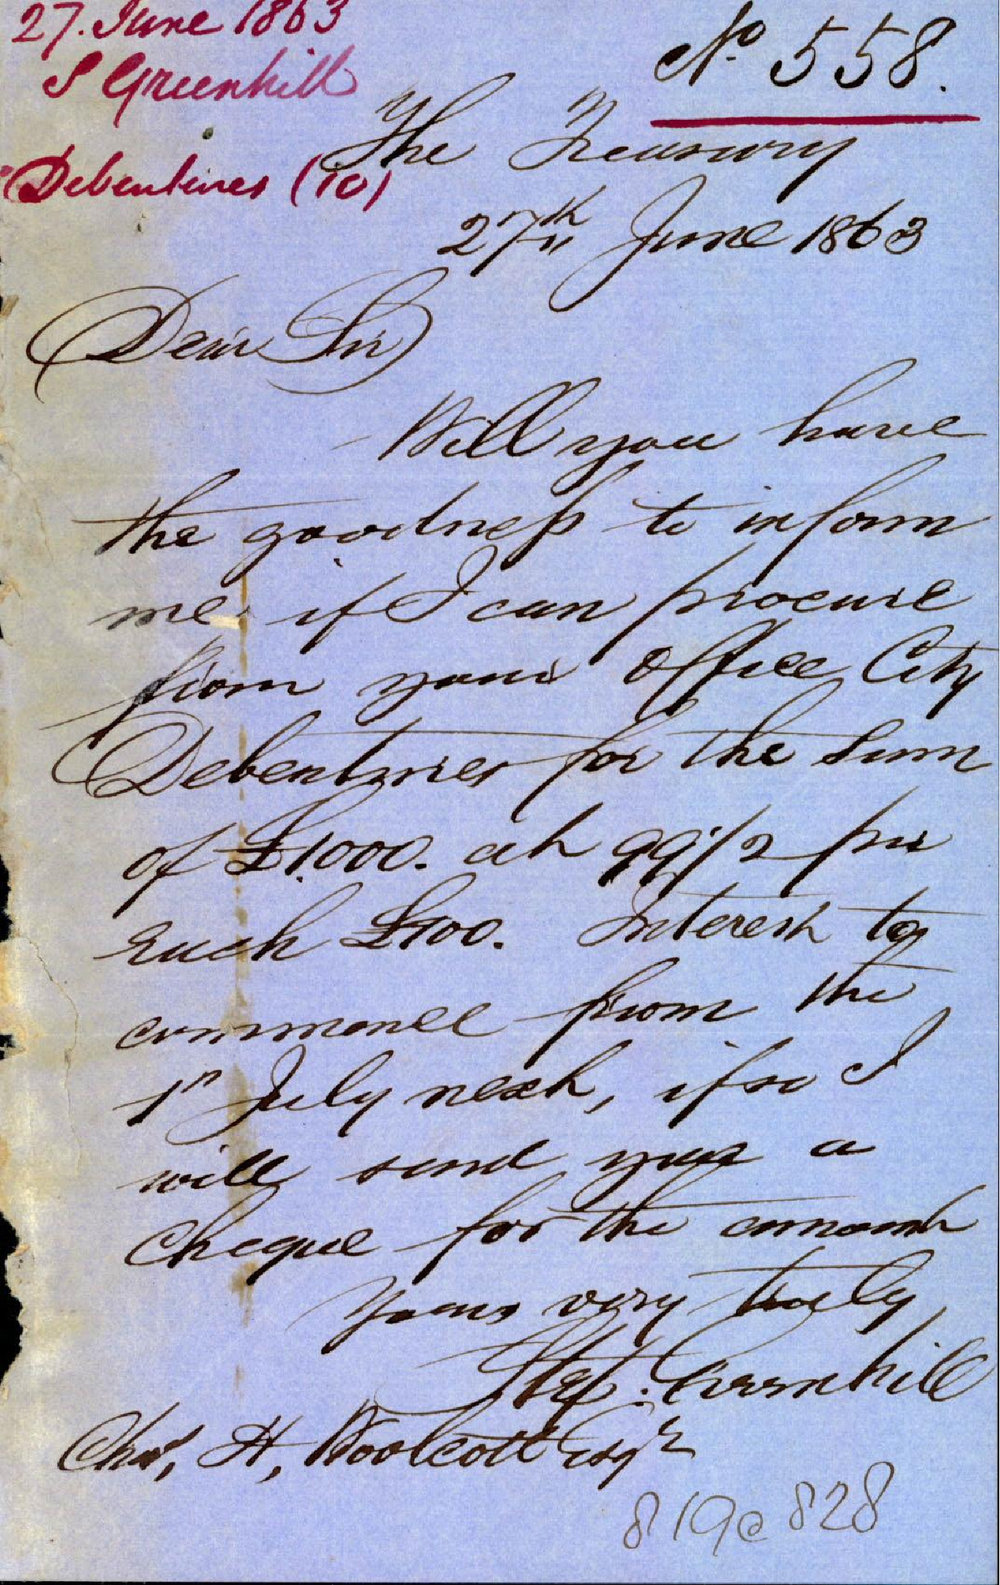 27. June 1863
S Greenhill
Debentures (10)
No. 558.
The Treasury
27th June 1863
Dear Sir
Will you have
the goodness to inform
me if I can procure
from your Office City
Debentures for the Sum
of £1000. at 99 1/2 per
each £100. Interest to
commence from the
1st July next, if so I
will send you a
Cheque for the amount
Yours very truly
Step. Greenhill
Chas, H, Woolcott Esqr
819@828